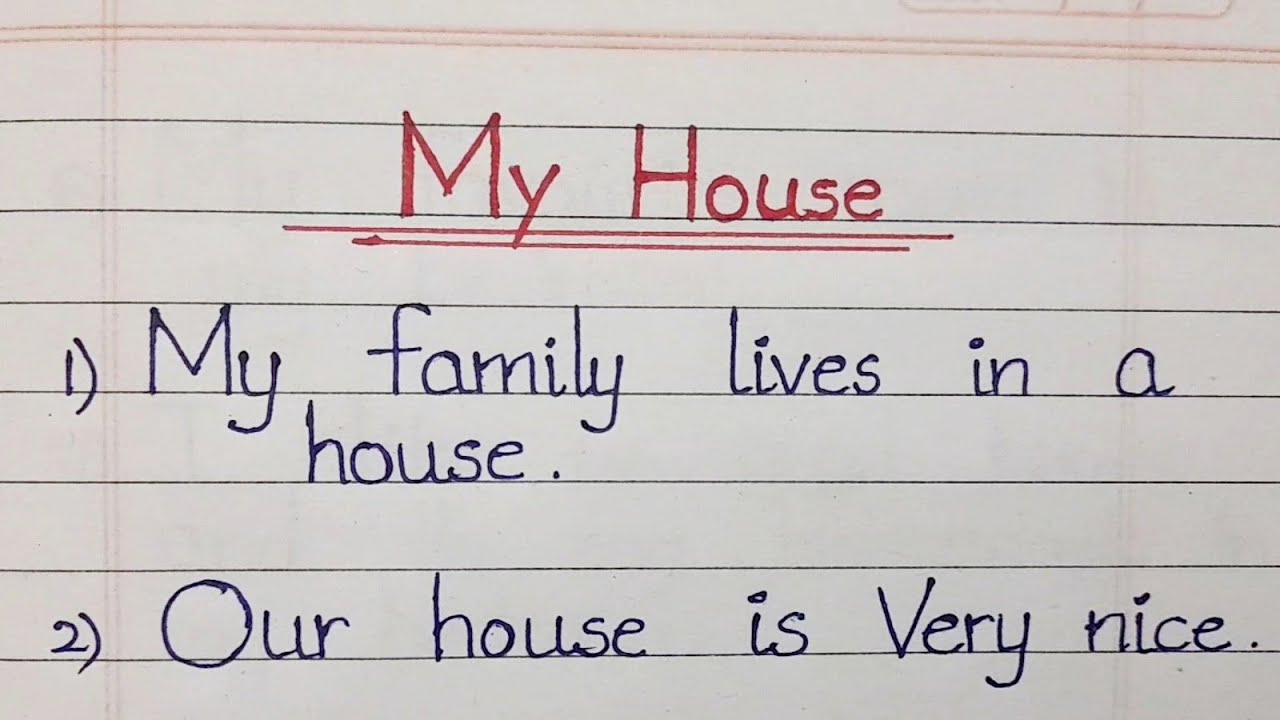 My House
1) My family lives in a
house.
2) Our house is Very nice.